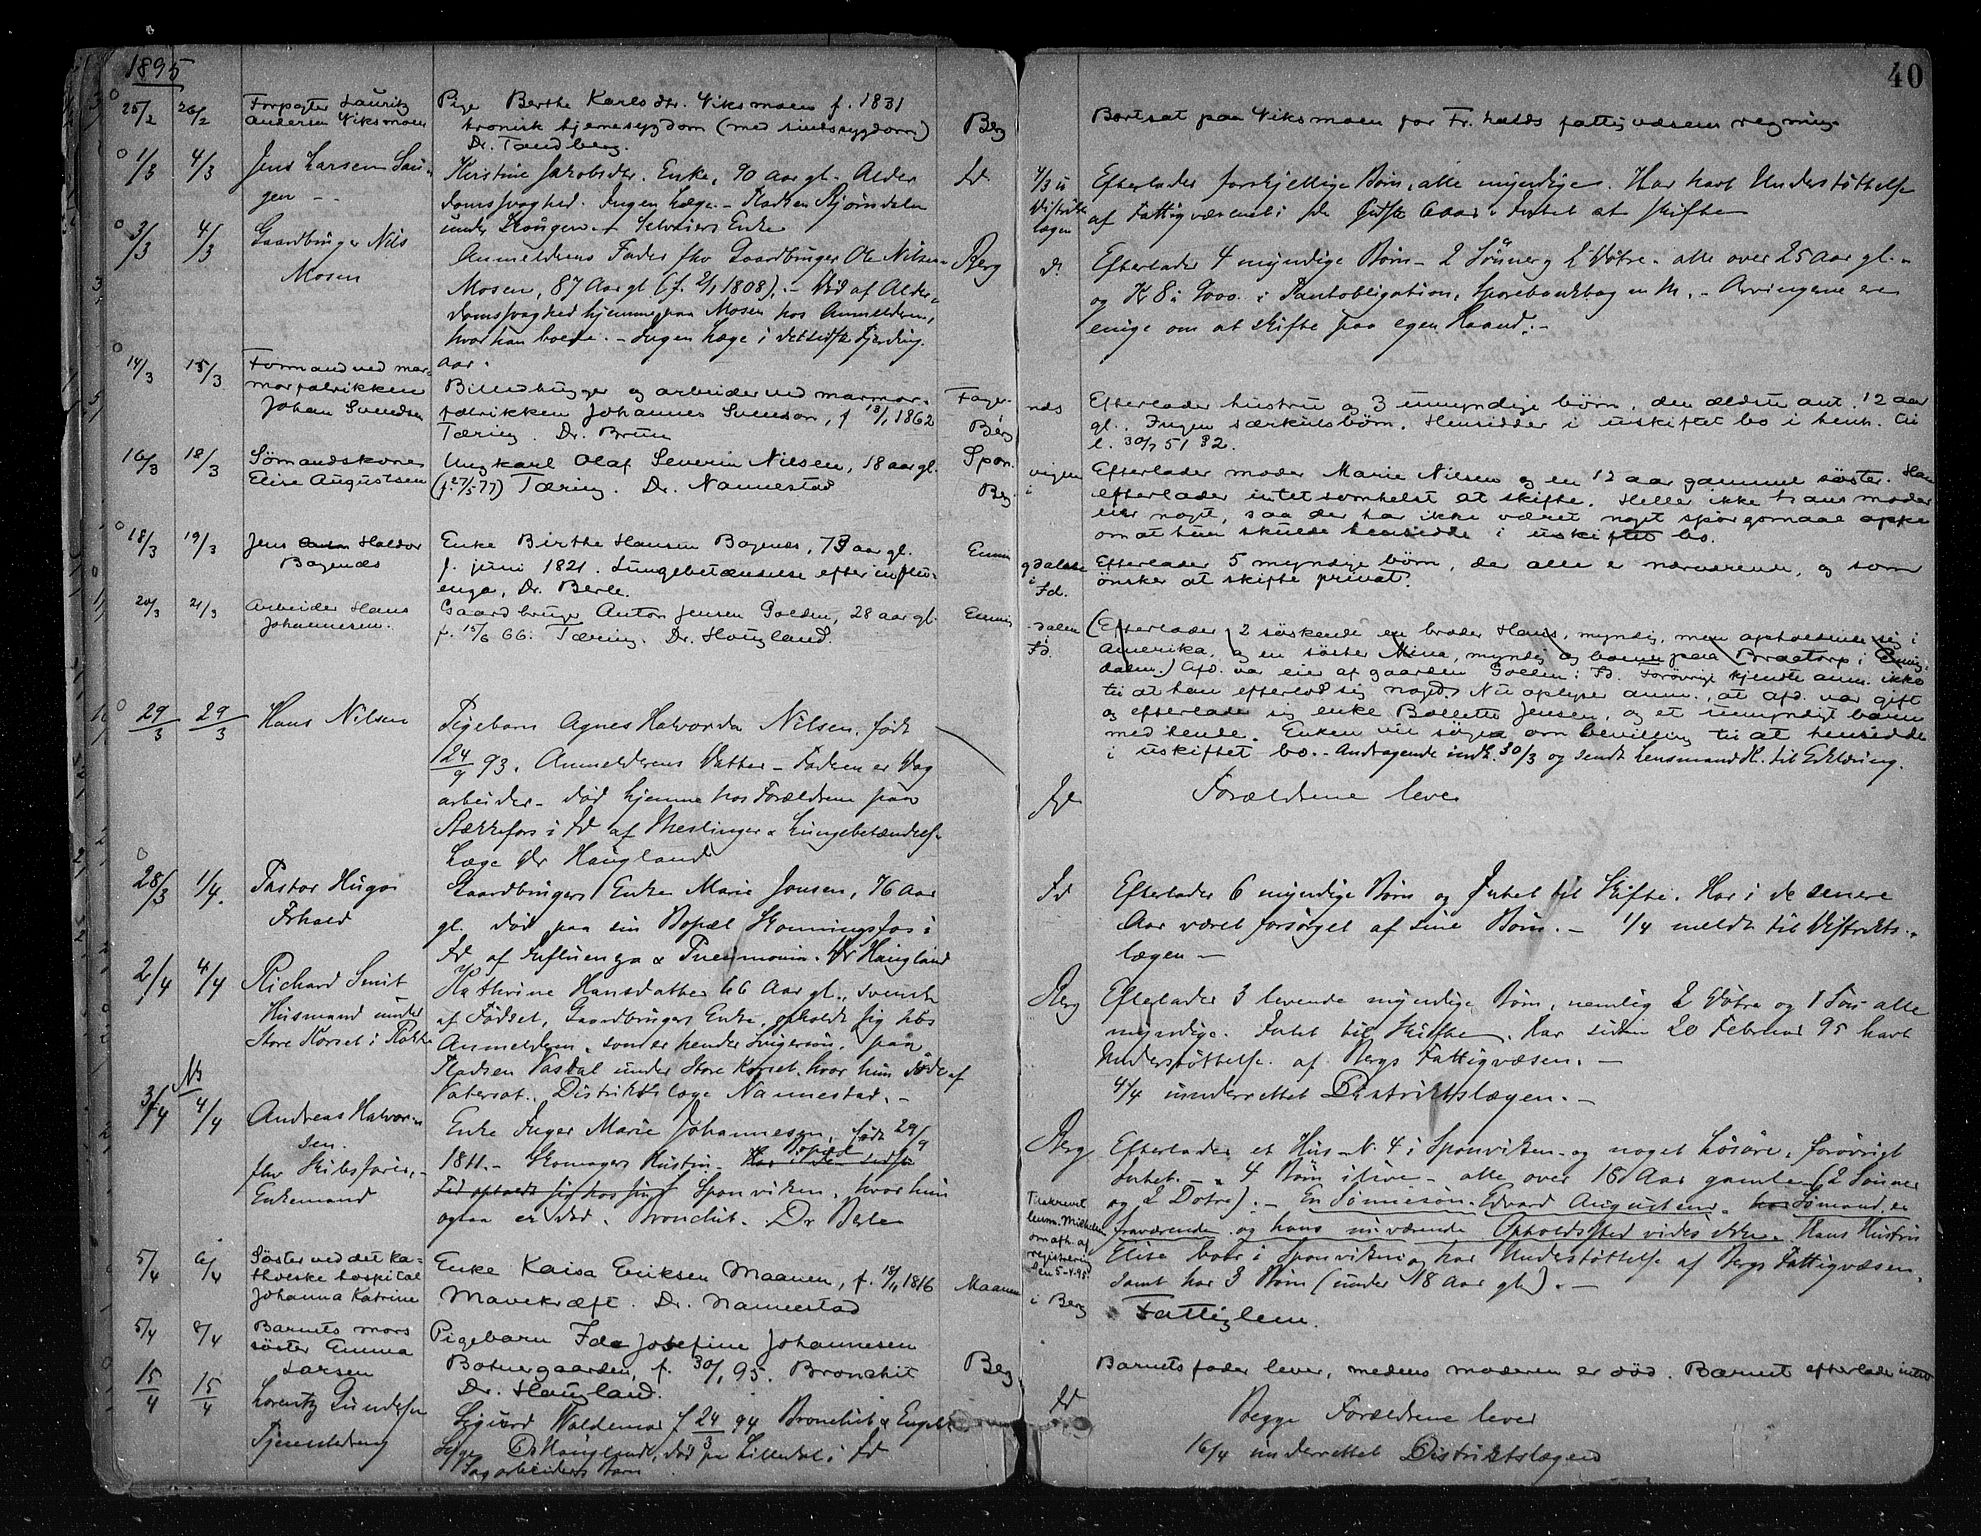 1895
40
25/2 26/2 Forpagter Lauritz
Andersen Viksmoen
Pige Berthe Karlsdtr. Viksmoen f. 1831
kronisk hjernesygdom (med sindssygdom)
Dr. Tandberg.
Berg
Bortsat paa Viksmoen for Fr.halds fattigvæsens regning.
1/3 4/3 Jens Larsen Hau-
gen
Kirstine Jakobsdtr. Enke, 70 Aar gl. Alder
domssvaghed. Ingen Læge. - Pladsen Bjørndalen
under Enke
Id
4/3 u
Distrikts
lægen
Efterlader forskjellige Børn, alle myndige. Har havt Understøttelse
af Fattigvæsenet i de sidste Aar. Intet at skifte
3/3 4/3 Gaardbruger Nils
Mosen
Anmelderens Fader fhv Gaardbruger Ole Nilsen
Mosen, 87 Aar gl (f. 2/1 1808). - Død af Alder-
domssvaghed hjemme paa Mosen hos Anmelderen,
hvor han boede. - Ingen Læge i det sidste Fjerding
aar.
Berg
Efterlader 4 myndige Børn - 2 Sønner og 2 Døtre - alle over 25 Aar gl. -
og i Pantobligation, Sparebankbog m. - Arvingerne ere
enige om at skifte paa egen Haand. -
14/3 15/3 Formand ved mar-
morfabrikken
Johan Svendsen
Billedhugger og arbeider ved marmor-
fabrikken Johannes Svenson, f 13/1 1862
Tæring. Dr. Brun
Fager-
næs
Berg
Efterlader hustru og 3 umyndige børn, den ældste ant. 12 aar
gl. Ingen særkulsbørn. Hensidder i uskiftet bo i henh. til
l. 30/7 51 § 2.
16/3 18/3 Sømandskone
Elise Augustsen
Ungkarl Olaf Severin Nilsen, 18 aar gl.
(f. 27/5 77) Tæring. Dr. Nannestad
Spon-
vigen
i
Berg.
Efterlader moder Marie Nilsen og en 12 aar gammel søster. Han
efterlader intet somhelst at skifte. Heller ikke hans moder
eier noget, saa der har ikke været noget spørgsmaal oppe
om at hun skulde hensidde i uskiftet bo.
18/3 19/3 Jens Haldor
Bagenæs
Enke Birthe Hansen Bagenæs, 73 aar gl.
f. juni 1821. Lungebetændelse efter influ-
enza, Dr. Berle.
Ennin
gdalen
i
Id.
Efterlader 5 myndige børn, der alle er nærværende, og som
ønsker at skifte privat.
20/3 21/3 Arbeider Hans
Johannesen.
Gaardbruger Anton Jensen Goeden, 28 aar gl.
f. 15/6 66. Tæring. Dr. Haugland.
Enning
dalen
Id.
(Efterlader 2 søskende en broder Hans, myndig, men opholdende sig i
Amerika, og en søster Mina, myndig og boende paa Braatorp i Enning-
dalen.) Afd. var eier af gaarden Goeden i Id. Forøvrigt kjendte anm. ikke
til at han efterlod sig noget. Nu oplyser anm., at afd. var gift
og efterlader sig enke Bolette Jensen, og et umyndigt barn
med hende. Enken vil søge om bevilling til at hensidde
i uskiftet bo. - Andragende indk. 30/3 og sendt Lensmand til Erklæring.
29/3 29/3 Hans Nilsen
Pigebarn Agnes Halvorda Nilsen. født
24/9 93. Anmelderens Datter - Faderen er Dag
arbeider - død hjemme hos Forældrene paa
Stækkefos i Id af Meslinger & Lungebetændelse
Læge Dr Haugland
Id
Forældrene lever
28/3 1/4. Pastor Hugo
Frhald
Gaardbrugers Enke Marie Jonsen, 76 Aar
gl. død paa sin Bopæl Skonningsfos i
Id af Influenza & Pneumonia. Dr Haugland
Id
Efterlader 6 myndige Børn og Intet til Skifte. Har i de senere
Aar været forsørget af sine Børn. - 1/4 meldt til Distrikts-
lægen -
2/4 4/4 Richard Smit
Husmand under
Store Korset i Rokke
Kathrine Hansdatter 66 Aar gl., svensk
af Fødsel, Gaardbrugers Enke, opholdt sig hos
Anmelderen, som er hendes Svigersøn, paa
Pladsen Vasdal under Store Korset, hvor hun døde af
Vatersot. Distriktslæge Nannestad. -
Berg
Efterlader 3 levende myndige Børn, nemlig 2 Døtre og 1 Søn alle
myndige. Intet til Skifte. Har siden 20 Februar 95 havt
Understøttelse af Bergs Fattigvæsen. -
4/4 underrettet Distriktslægen. -
Nb
3/4 4/4 Andreas Halvor-
sen.
fhv Skibsfører, -
Enkemand
Enke Inger Marie Johannesen, født 29/9
1811. - Skomagers Hustru - Bopæl
Sponviken, hvor hun
ogsaa er død. Bronchit. Dr Berle
Berg
Efterlader et Hus N. 4 i Sponviken - og noget Løsøre, forøvrigt
Intet. - 4 Børn ilive - alle over 18 Aar gamle (2 Sønner
og 2 Døtre). - En Sønnesøn Edvard Augustsen - Sømand, er
fraværende og hans nuværende Opholdssted vides ikke. Hans Hustru
Elise boer i Sponviken og har Understøttelse af Bergs Fattigvæsen.
samt har 3 Børn (under 18 Aar gl). -
Tilskrevet
lensm.
om afh. af
registrering
den 5-4-95
5/4 6/4 Søster ved det ka-
tholske hospital
Johanna Katrine
Enke Kaisa Eriksen Maanen, f. 18/1 1816
Mavekræft. Dr. Nannestad
Maanen
i Berg
Fattiglem.
5/4 8/4 Barnets mors
søster Emma
Larsen
Pigebarn Ida Josefine Johannesen
Botnergaarden, f. 30/1 95. Bronchit
Dr. Haugland.
Berg
Barnets fader lever, medens moderen er død. Barnet efterlader intet
15/4 15/4 Lorentz Gundersen
Sigurd Waldemar f 24/3 94 Bronchit &
Dr Haugland, død paa Lilledal i Id
Dagarbeiders barn
Id
Begge Forældrene lever
16/4 underrettet Distriktslægen